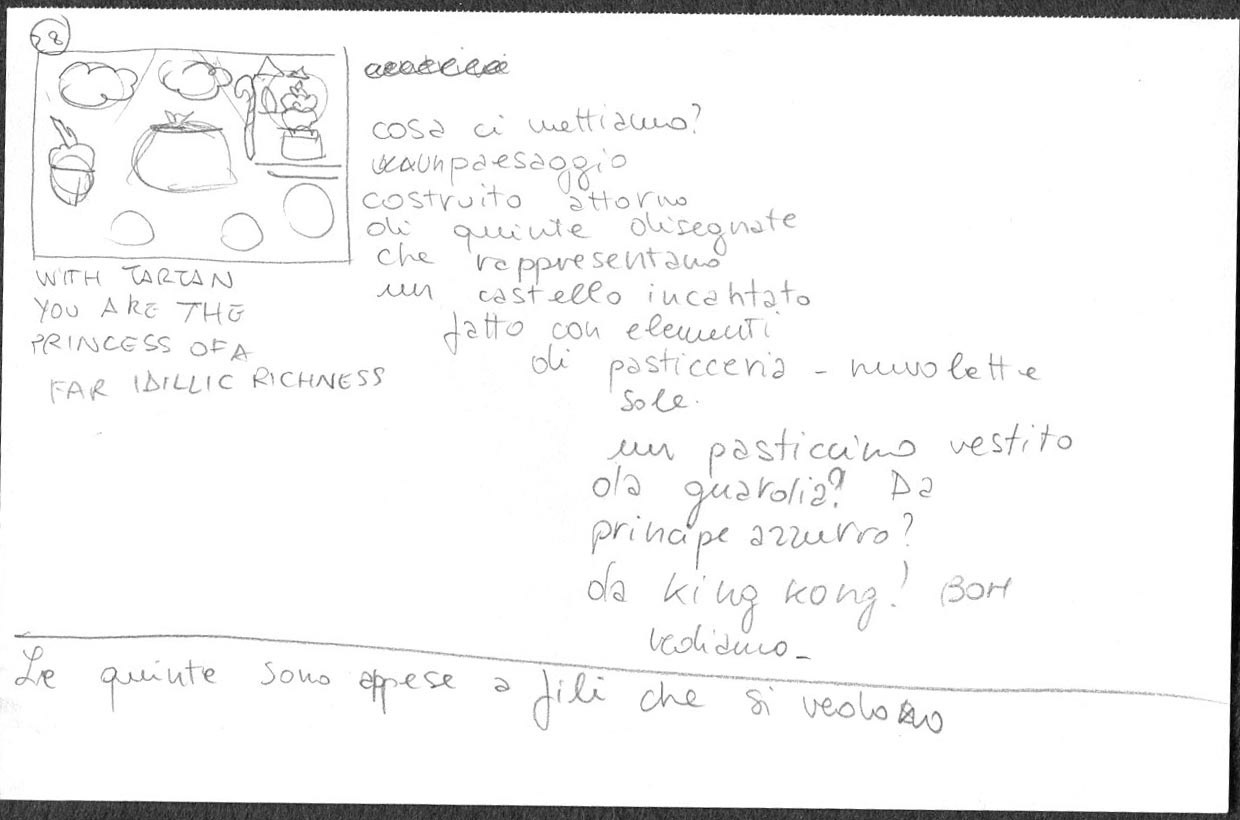 28
WITH TARTAN
YOU ARE THE
PRINCESS OF A
FAR IDILLIC RICHNESS
cosa ci mettiamo?
un paesaggio
costruito attorno
di quinte disegnate
che rappresentano
un castello incantato
fatto con elementi
di pasticceria - nuvolette
sole.
un pasticcino vestito
da guardia? Da
principe azzurro?
da king kong! BOH
vediamo_
Le quinte sono appese a fili che si vedono